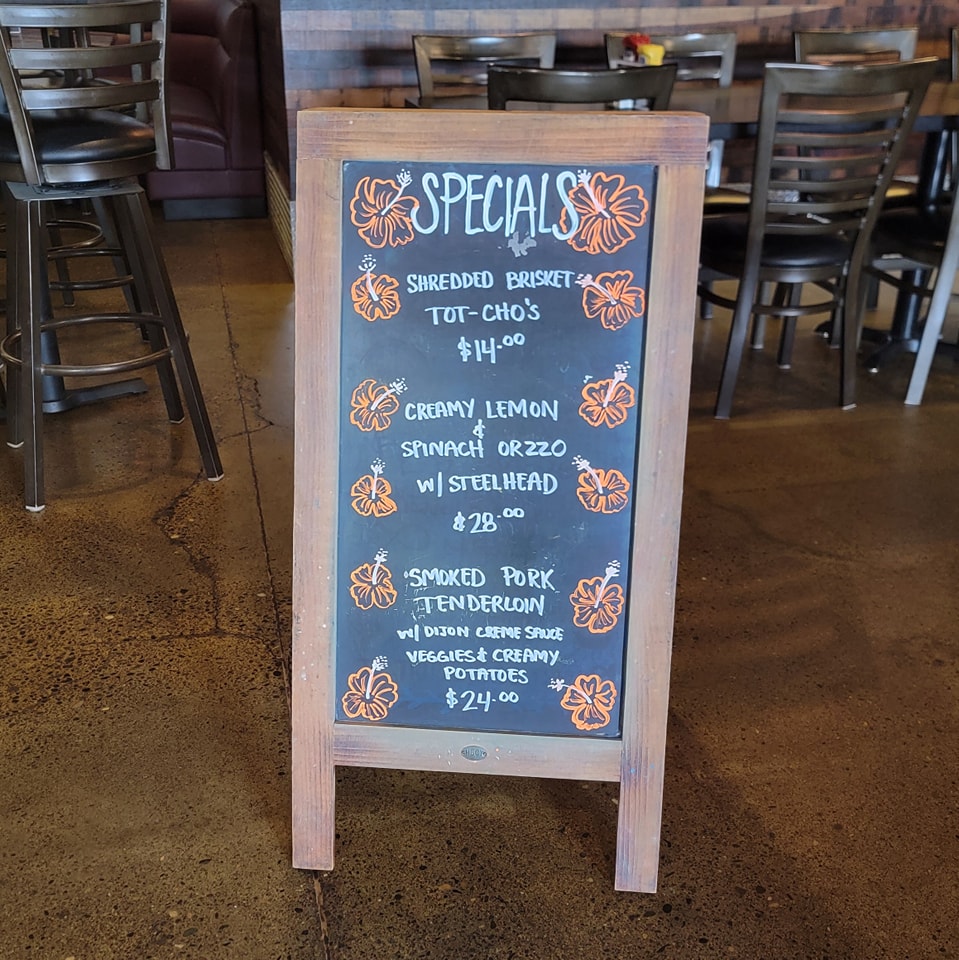 SPECIALS
SHREDDED BRISKET
TOT-CHO'S
$14.00
CREAMY LEMON
&
SPINACH ORZZO
W/ STEELHEAD
$28.00
SMOKED PORK
TENDERLOIN
W/ DIJON CREME SAUCE
VEGGIES & CREAMY
POTATOES
$24.00